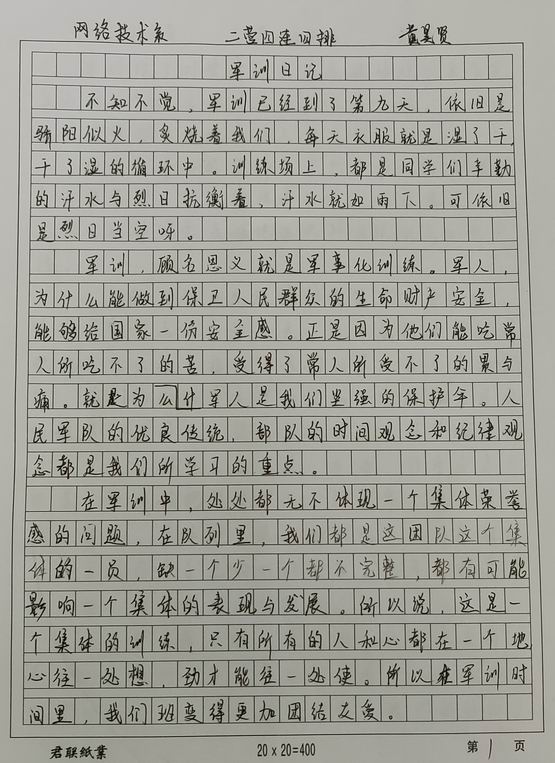 网络技术系 二营四连四排 黄昊贤
军训日记
不知不觉，军训已经到了第九天，依旧是
骄阳似火，炙烧着我们，每天衣服就是湿了干，
干了湿的循环中。训练场上，都是同学们辛勤
的汗水与烈日抗衡着，汗水就如雨下。可依旧
是烈日当空呀。
军训，顾名思义就是军事化训练。军人，
为什么能做到保卫人民群众的生命财产安全，
能够给国家一份安全感。正是因为他们能吃常
人所吃不了的苦，受得了常人所受不了的累与
痛。就是为么什军人是我们坚强的保护伞。人
民军队的优良传统，部队的时间观念和纪律观
念都是我们所学习的重点。
在军训中，处处都无不体现一个集体荣誉
感的问题，在队列里，我们都是这团队这个集
体的一员，缺一个少一个都不完整，都有可能
影响一个集体的表现与发展。所以说，这是一
个集体的训练，只有所有的人和心都在一个地
心往一处想，劲才能往一处使。所以在军训时
间里，我们班变得更加团结友爱。
君联纸业 20×20=400 第1页